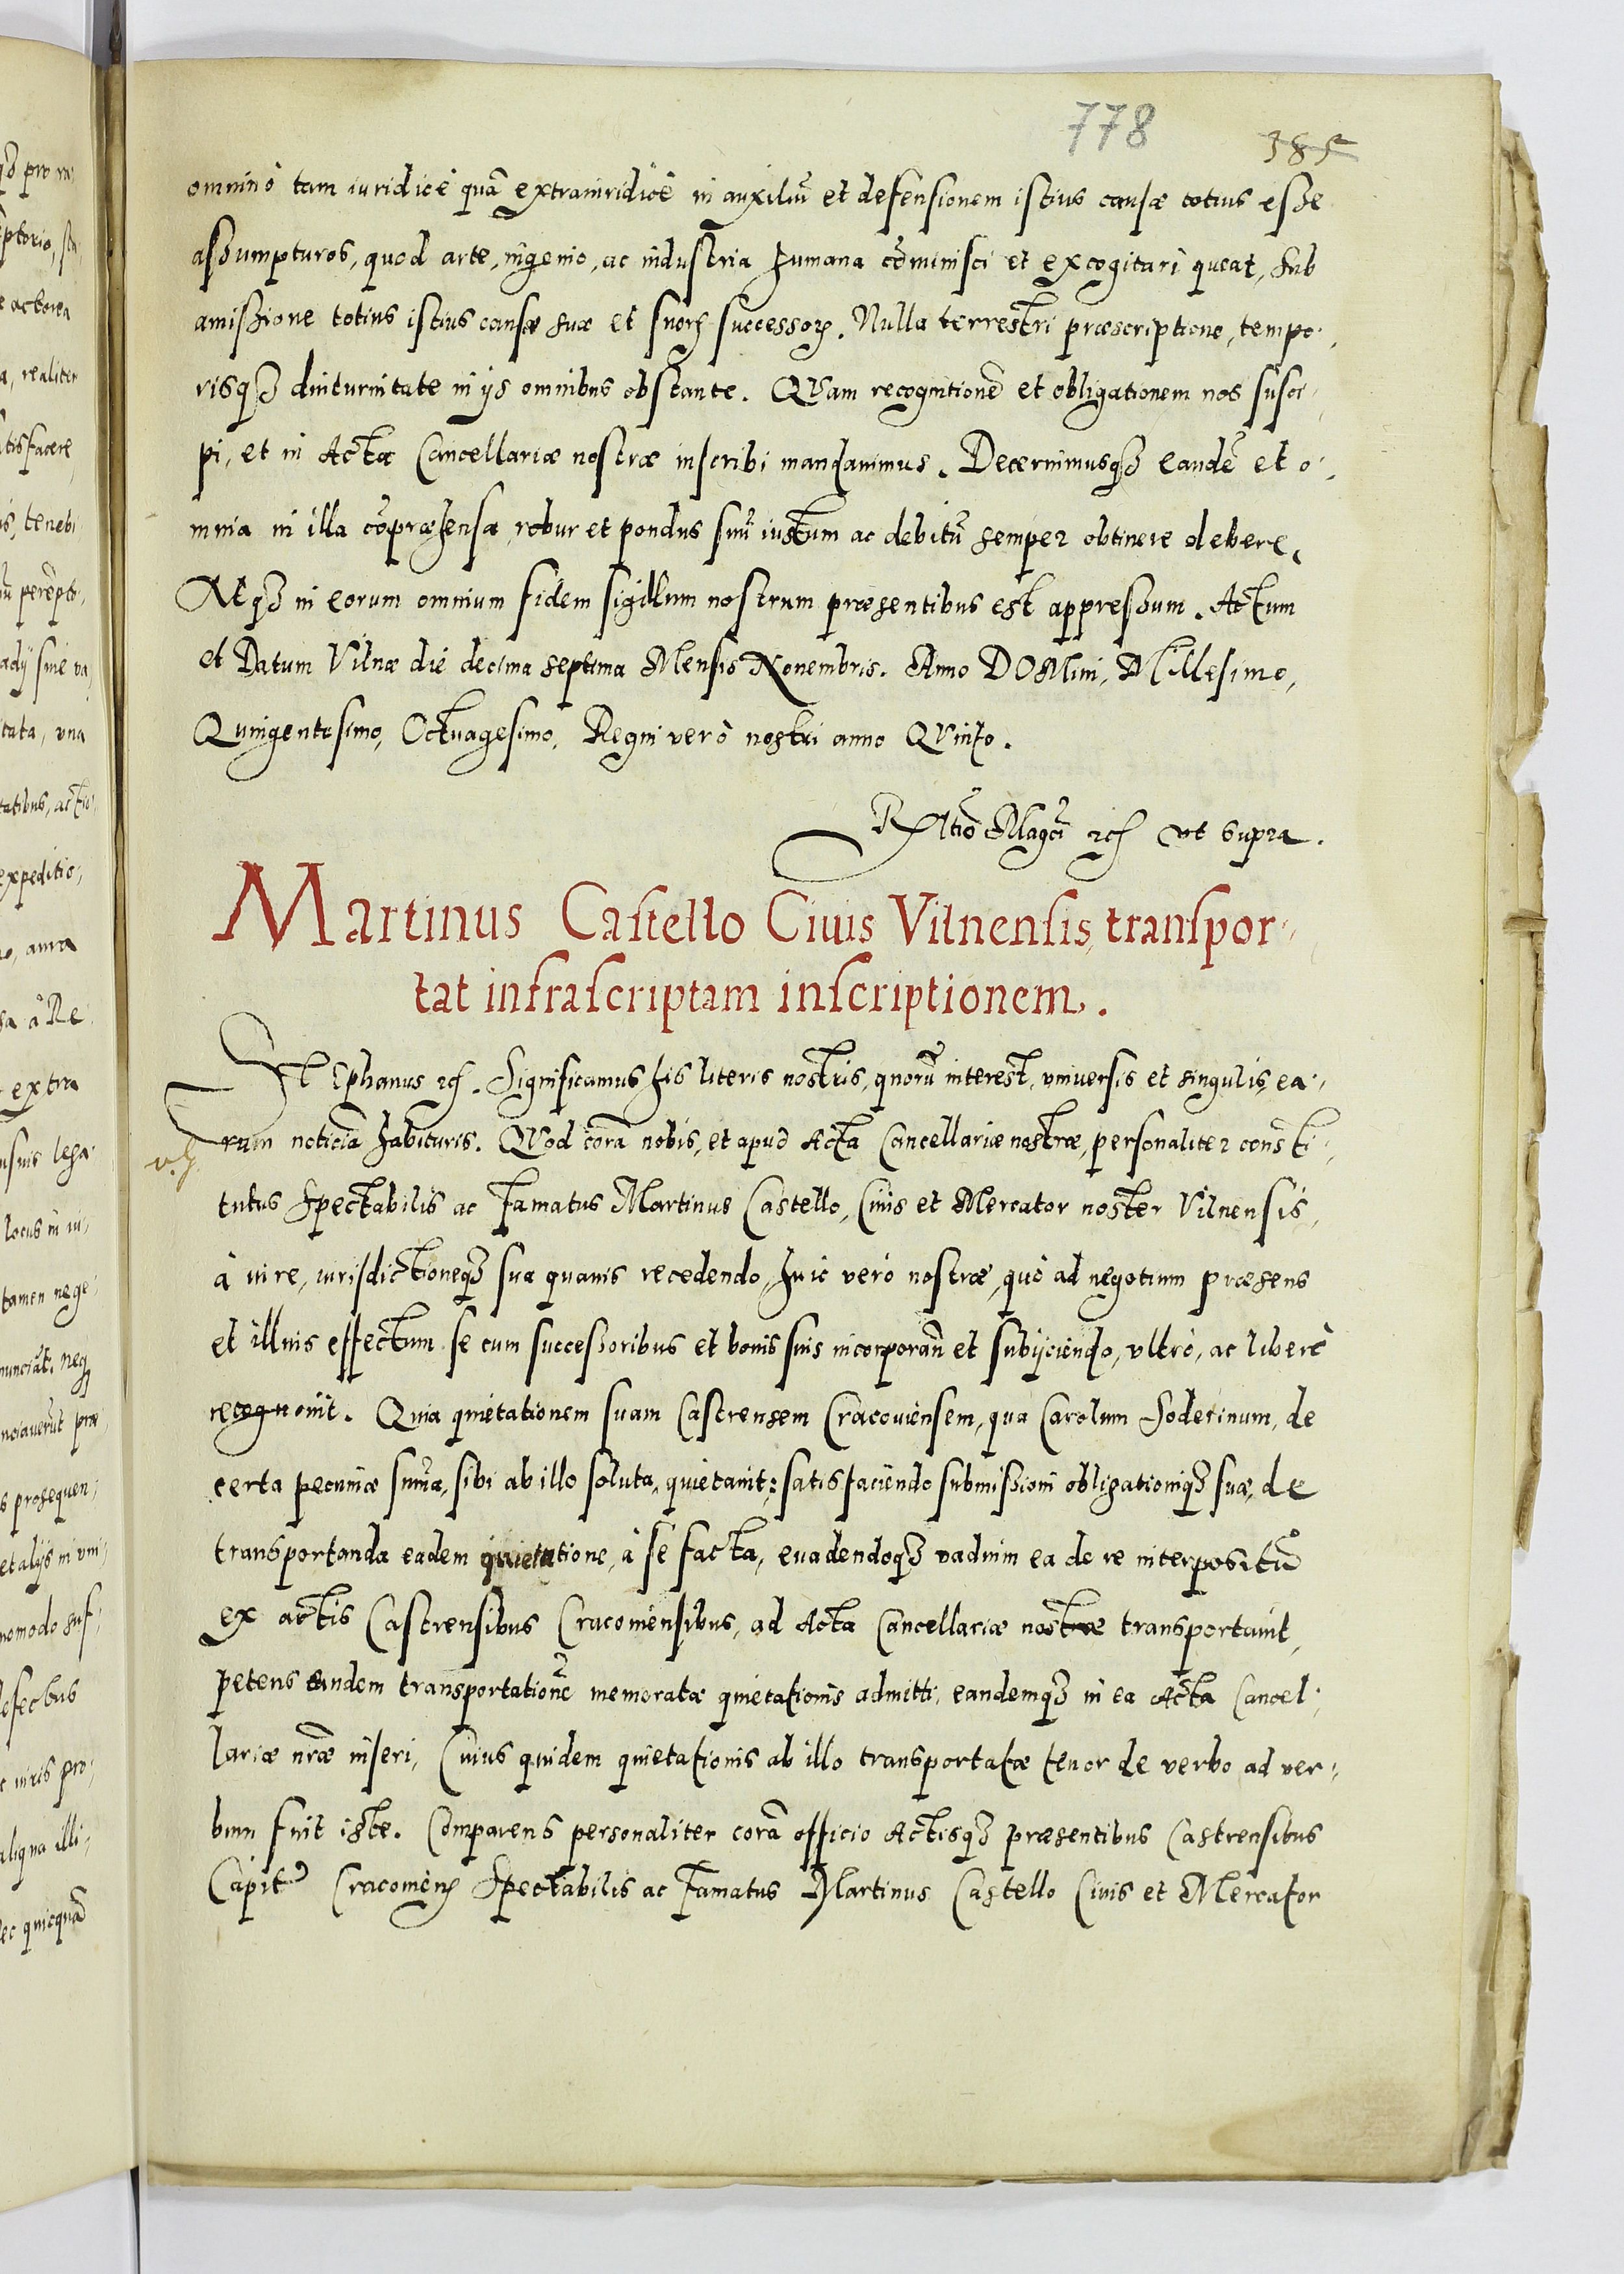 778
385
omninò tam iuridicè quã extraiuridicè in auxiliũ et defensionem istius causæ totius esse
assumpturos, quod arte, ingenio, ac industria humana cõminisci et excogitari queat, sub
amissione totius istius causæ suæ et suorꝫ successorꝫ. Nulla terrestri præscriptione, tempo-
risqꝫ diuturnitate in ijs omnibus obstante. QVam recognitionẽ et obligationem nos susci-
pi, et in Acta Cancellariæ nostræ inscribi mandauimus. Decernimusqꝫ eandẽ et o-
mnia in illa cõpræhensa, robur et pondus suũ iustum ac debitũ semper obtinere debere.
Atqꝫ in eorum omnium fidem sigillum nostrum præsentibus est appressum. Actum
et Datum Vilnæ die decima septima Mensis Nouembris. Anno DOMini, Millesimo,
Quingentesimo, Octuagesimo, Regni verò nostri anno QVinto.
Rltiõ Magcĩ ꝛcꝫ vt supra.
Martinus Castello Ciuis Vilnensis, transpor-
tat infrascriptam inscriptionem.
STEphanus ꝛcꝫ. Significamus his literis nostris, quorũ interest, vniuersis et singulis, ea-
rum noticiã habituris. QVod corã nobis, et apud Acta Cancellariæ nostræ, personaliter consti-
tutus Spectabilis ac Famatus Martinus Castello, Ciuis et Mercator noster Vilnensis,
à iure, iurisdictioneqꝫ sua quauis recedendo, huic verò nostræ, quò ad negotium præsens
et illius effectum se cum successoribus et bonis suis incorporañ et subijciendo, vltrò, ac liberè
recognouit. Quia quietationem suam Castrensem Cracouiensem, qua Carolum Soderinum, de
certa pecuniæ sum̃a, sibi ab illo soluta, quietauit: satisfaciendo submissioni obligationiqꝫ suæ, de
transportanda eadem quietatione, à se facta, euadendoqꝫ vadium ea de re interpositũ
ex actis Castrensibus Cracouiensibus, ad Acta Cancellariæ nostræ transportauit,
petens eandem transportationẽ memoratæ quietationis admitti, eandemqꝫ in ea Acta Cancel-
lariæ nr̃æ inseri, Cuius quidem quietationis ab illo transportatæ tenor de verbo ad ver-
bum fuit iste. Comparens personaliter corã officio Actisqꝫ præsentibus Castrensibus
Capit̃ Cracouieñ Spectabilis ac Famatus Martinus Castello Ciuis et Mercator